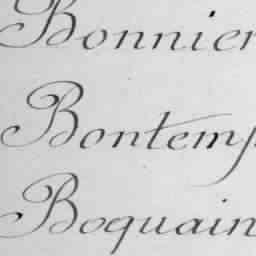 Bonnier
Bontemps
Boquain